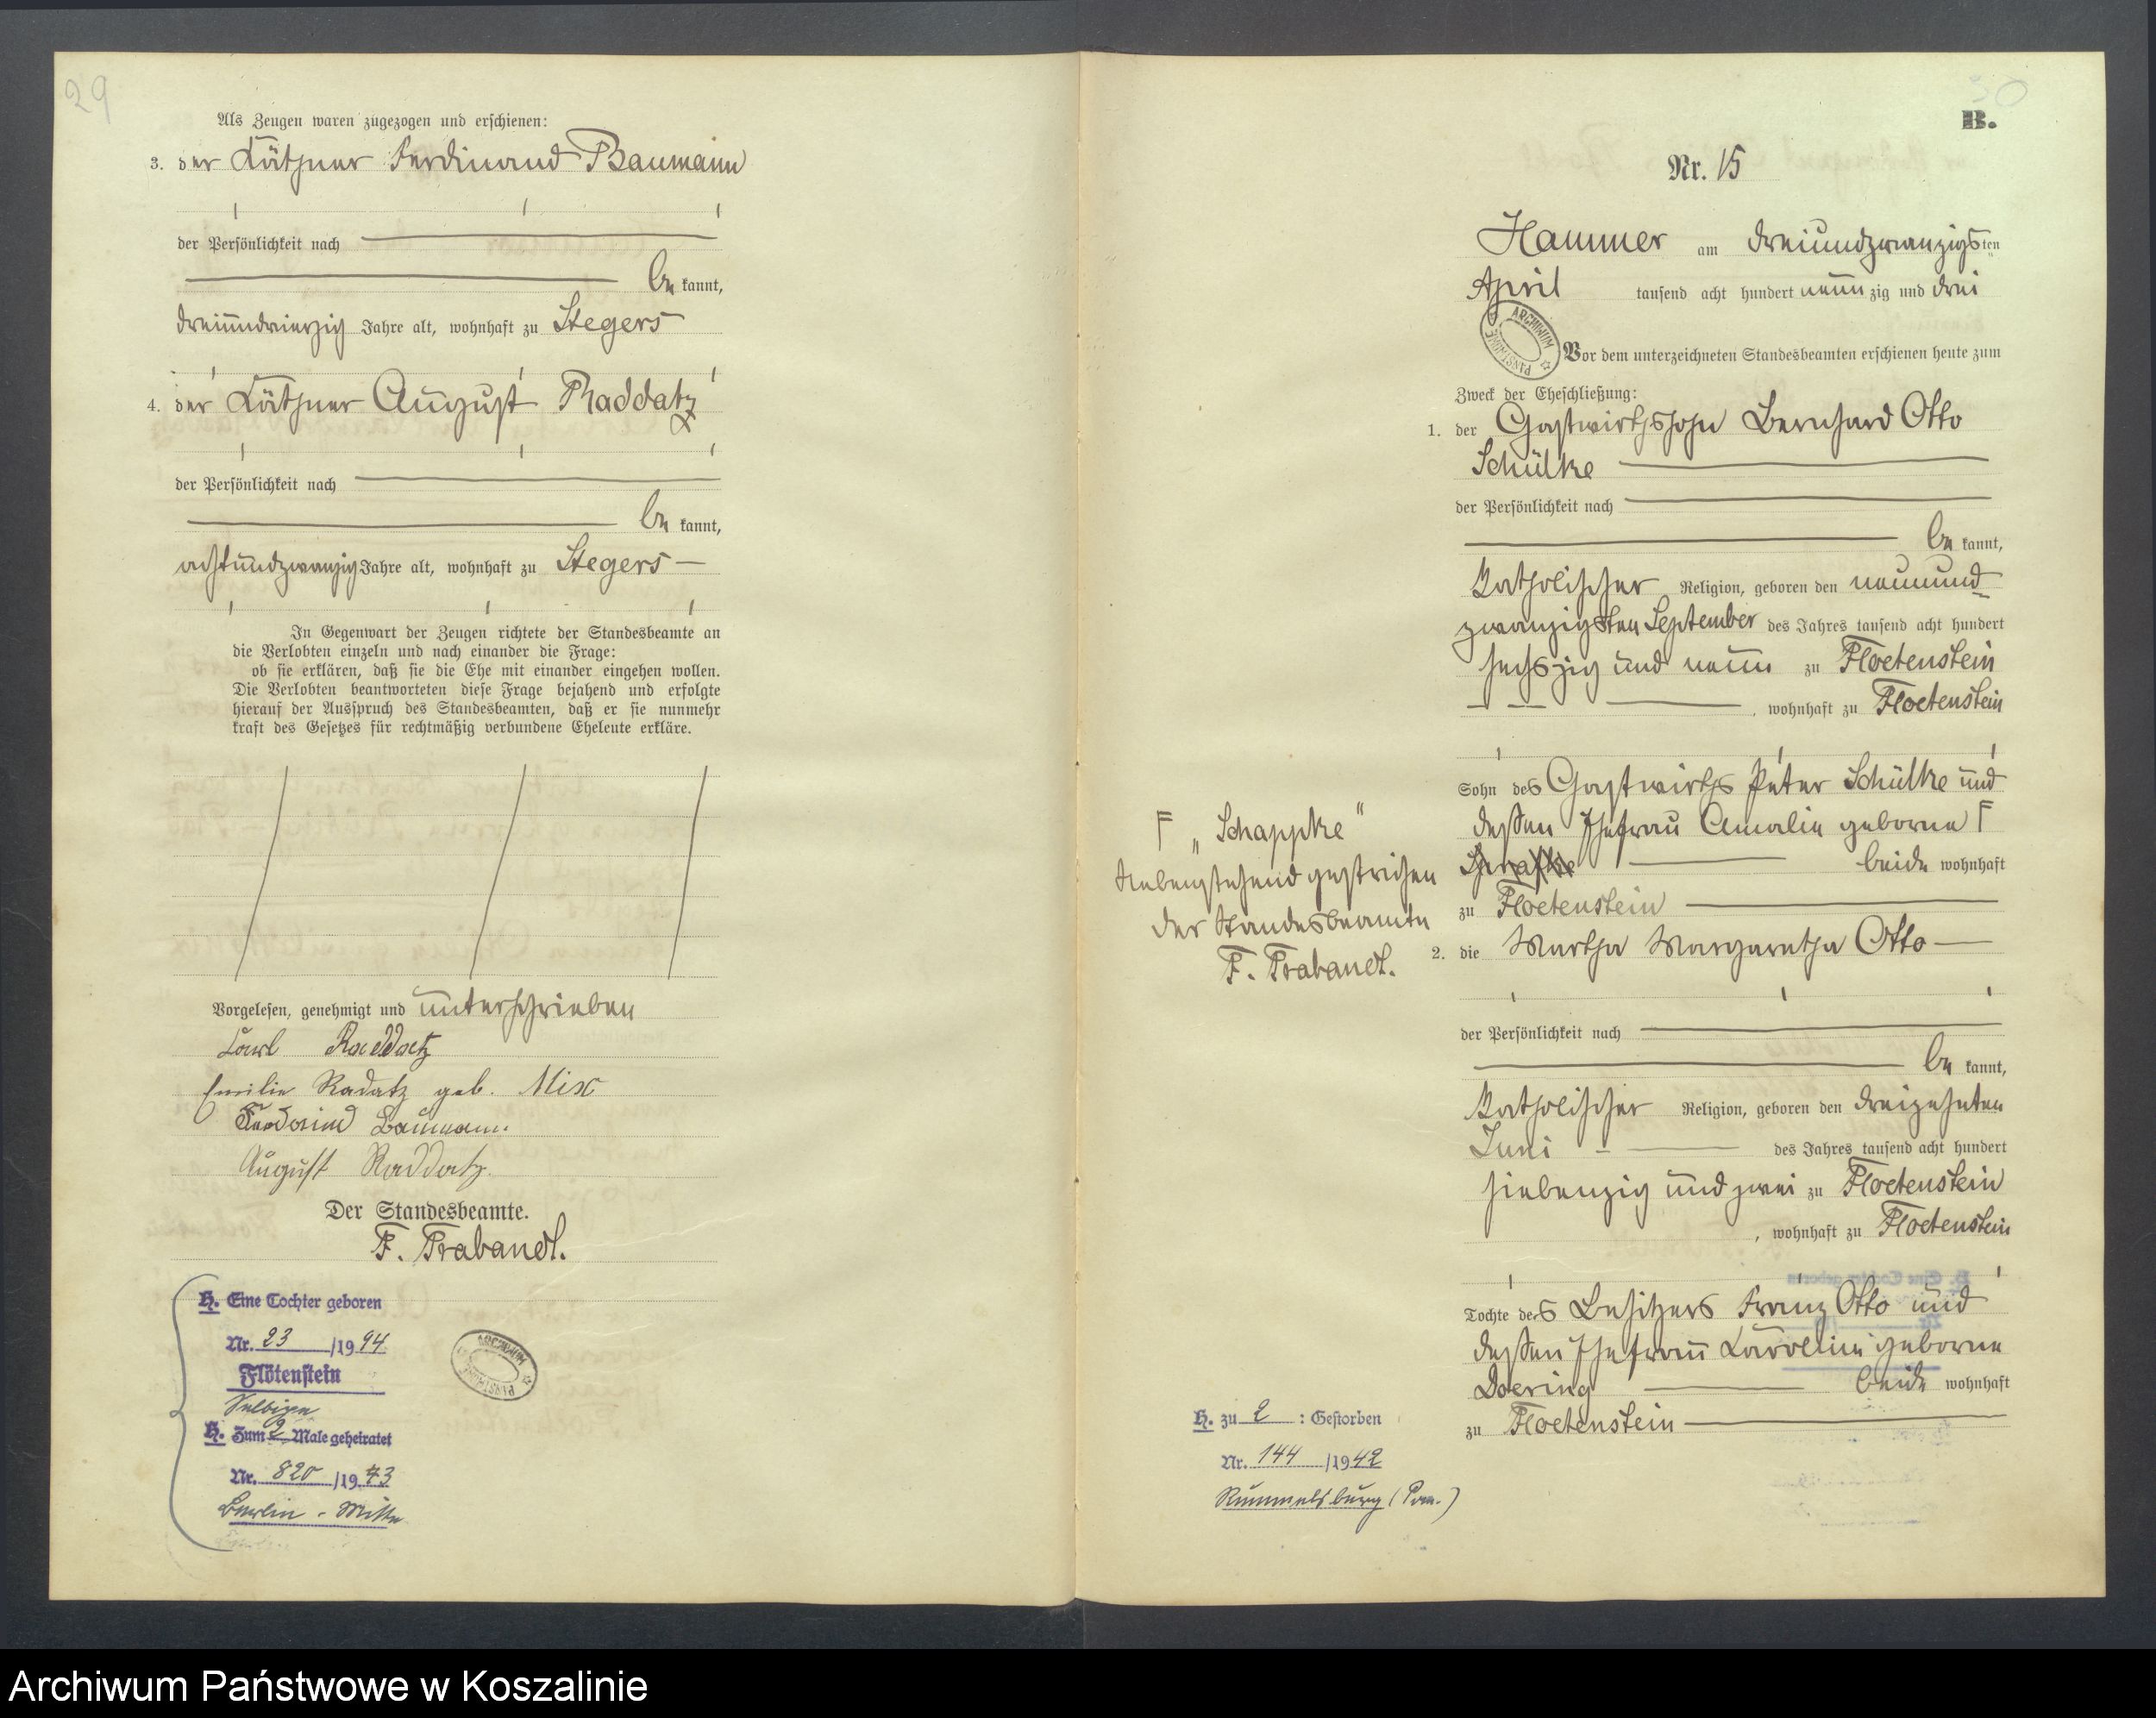 29
Als Zeugen waren zugezogen und erschienen:
3. der Käthner Ferdinand Baumann
der Persönlichkeit nach
be kannt,
dreiundvierzig Jahre alt, wohnhaft zu Stegers
4. der Käthner August Raddatz
der Persönlichkeit nach
be kannt,
achtundzwanzig Jahre alt, wohnhaft zu Stegers
In Gegenwart der Zeugen richtete der Standesbeamte an
die Verlobten einzeln und nach einander die Frage:
ob sie erklären, daß sie die Ehe mit einander eingehen wollen.
Die Verlobten beantworteten diese Frage bejahend und erfolgte
hierauf der Ausspruch des Standesbeamten, daß er sie nunmehr
kraft des Gesetzes für rechtmäßig verbundene Eheleute erkläre.
Vorgelesen, genehmigt und unterschrieben
Carl Raddatz
Emilie Radatz geb. Mix
Baumann
August Raddatz.
Der Standesbeamte.
F. Trabandt.
H. Eine Tochter geboren
Nr. 23 /1994
Flötenstein
Selbigen
H. Zum 2 Male geheiratet
Nr. 820 /1943
Berlin - Mitte
30
B.
Nr. 15
Hammer am dreiundzwanzigsten
April tausend acht hundert neunzig und drei
ARCHIWUM PAŃSTWOWE
Vor dem unterzeichneten Standesbeamten erschienen heute zum
Zweck der Eheschließung:
1. der Gastwirthssohn Bernhard Otto
Schülke
der Persönlichkeit nach
be kannt,
katholischer Religion, geboren den neunund
zwanzigsten September des Jahres tausend acht hundert
sechszig und neun zu Floetenstein
, wohnhaft zu Floetenstein
Sohn des Gastwirths Peter Schülke und
dessen Ehefrau Amalie geborne F
beide wohnhaft
zu Floetenstein
F „Schappke“
Nebenstehend gestrichen
der Standesbeamte
F. Trabandt.
2. die Martha Margaretha Otto
der Persönlichkeit nach
be kannt,
katholischer Religion, geboren den dreizehnten
Juni des Jahres tausend acht hundert
siebenzig und zwei zu Floetenstein
, wohnhaft zu Floetenstein
Tochter des Besitzers Franz Otto und
dessen Ehefrau Caroline geborne
Doering beide wohnhaft
zu Floetenstein
H. zu 2 : Gestorben
Nr. 144 /1942
Rummelsburg (Pom.)
Archiwum Państwowe w Koszalinie